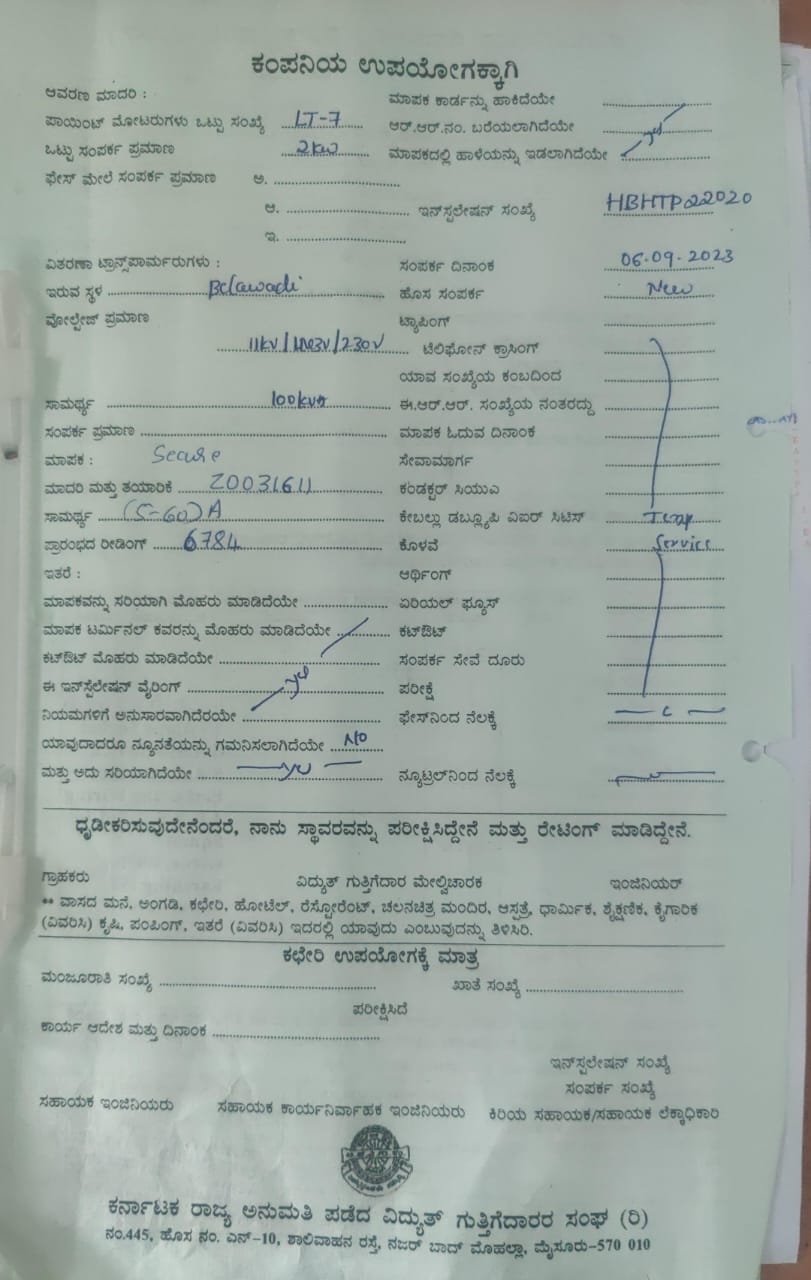 ಕಂಪನಿಯ ಉಪಯೋಗಕ್ಕಾಗಿ
ಆವರಣ ಮಾದರಿ :
ಮಾಪಕ ಕಾರ್ಡನ್ನು ಹಾಕಿದೆಯೇ
ಪಾಯಿಂಟ್ ಮೋಟರುಗಳು ಒಟ್ಟು ಸಂಖ್ಯೆ LT-7 ಆರ್.ಆರ್.ನಂ. ಬರೆಯಲಾಗಿದೆಯೇ yes
ಒಟ್ಟು ಸಂಪರ್ಕ ಪ್ರಮಾಣ 2kw ಮಾಪಕದಲ್ಲಿ ಹಾಳೆಯನ್ನು ಇಡಲಾಗಿದೆಯೇ
ಫೇಸ್ ಮೇಲೆ ಸಂಪರ್ಕ ಪ್ರಮಾಣ ಅ.
ಆ. ಇನ್‌ಸ್ಟಲೇಷನ್ ಸಂಖ್ಯೆ HBHTP022020
ಇ.
ವಿತರಣಾ ಟ್ರಾನ್ಸ್‌ಪಾರ್ಮರುಗಳು : ಸಂಪರ್ಕ ದಿನಾಂಕ 06.09.2023
ಇರುವ ಸ್ಥಳ Belawadi ಹೊಸ ಸಂಪರ್ಕ New
ವೋಲ್ಟೇಜ್ ಪ್ರಮಾಣ ಟ್ಯಾಪಿಂಗ್
11kv/ /230v ಟೆಲಿಫೋನ್ ಕ್ರಾಸಿಂಗ್
ಯಾವ ಸಂಖ್ಯೆಯ ಕಂಬದಿಂದ
ಸಾಮರ್ಥ್ಯ 100kva ಈ.ಆರ್.ಆರ್. ಸಂಖ್ಯೆಯ ನಂತರದ್ದು
ಸಂಪರ್ಕ ಪ್ರಮಾಣ ಮಾಪಕ ಓದುವ ದಿನಾಂಕ
ಮಾಪಕ : Secure ಸೇವಾಮಾರ್ಗ
ಮಾದರಿ ಮತ್ತು ತಯಾರಿಕೆ Z0031611 ಕಂಡಕ್ಟರ್ ಸಿಯುಎ
ಸಾಮರ್ಥ್ಯ (5-60)A ಕೇಬಲ್ಲು ಡಬ್ಲ್ಯೂಪಿ ವಿಐಆರ್ ಸಿಟಿಸ್ Temp
ಪ್ರಾರಂಭದ ರೀಡಿಂಗ್ 6784 ಕೊಳವೆ Service
ಇತರೆ : ಆರ್ಥಿಂಗ್
ಮಾಪಕವನ್ನು ಸರಿಯಾಗಿ ಮೊಹರು ಮಾಡಿದೆಯೇ ಏರಿಯಲ್ ಫ್ಯೂಸ್
ಮಾಪಕ ಟರ್ಮಿನಲ್ ಕವರನ್ನು ಮೊಹರು ಮಾಡಿದೆಯೇ ಕಟ್‌ಔಟ್
ಕಟ್‌ಔಟ್ ಮೊಹರು ಮಾಡಿದೆಯೇ ಸಂಪರ್ಕ ಸೇವೆ ದೂರು
ಈ ಇನ್‌ಸ್ಟೆಲೇಷನ್ ವೈರಿಂಗ್ yes ಪರೀಕ್ಷೆ
ನಿಯಮಗಳಿಗೆ ಅನುಸಾರವಾಗಿದೆರಯೇ ಫೇಸ್‌ನಿಂದ ನೆಲಕ್ಕೆ
ಯಾವುದಾದರೂ ನ್ಯೂನತೆಯನ್ನು ಗಮನಿಸಲಾಗಿದೆಯೇ NO
ಮತ್ತು ಅದು ಸರಿಯಾಗಿದೆಯೇ yes ನ್ಯೂಟ್ರಲ್‌ನಿಂದ ನೆಲಕ್ಕೆ
ಧೃಡೀಕರಿಸುವುದೇನೆಂದರೆ, ನಾನು ಸ್ಥಾವರವನ್ನು ಪರೀಕ್ಷಿಸಿದ್ದೇನೆ ಮತ್ತು ರೇಟಿಂಗ್ ಮಾಡಿದ್ದೇನೆ.
ಗ್ರಾಹಕರು ವಿದ್ಯುತ್ ಗುತ್ತಿಗೆದಾರ ಮೇಲ್ವಿಚಾರಕ ಇಂಜಿನಿಯರ್
** ವಾಸದ ಮನೆ, ಅಂಗಡಿ, ಕಛೇರಿ, ಹೋಟೆಲ್, ರೆಸ್ಟೋರೆಂಟ್, ಚಲನಚಿತ್ರ ಮಂದಿರ, ಆಸ್ಪತ್ರೆ, ಧಾರ್ಮಿಕ, ಶೈಕ್ಷಣಿಕ, ಕೈಗಾರಿಕ
(ವಿವರಿಸಿ) ಕೃಷಿ, ಪಂಪಿಂಗ್, ಇತರೆ (ವಿವರಿಸಿ) ಇದರಲ್ಲಿ ಯಾವುದು ಎಂಬುವುದನ್ನು ತಿಳಿಸಿರಿ.
ಕಛೇರಿ ಉಪಯೋಗಕ್ಕೆ ಮಾತ್ರ
ಮಂಜೂರಾತಿ ಸಂಖ್ಯೆ ಖಾತೆ ಸಂಖ್ಯೆ
ಪರೀಕ್ಷಿಸಿದೆ
ಕಾರ್ಯ ಆದೇಶ ಮತ್ತು ದಿನಾಂಕ
ಇನ್‌ಸ್ಟಲೇಷನ್ ಸಂಖ್ಯೆ
ಸಂಪರ್ಕ ಸಂಖ್ಯೆ
ಸಹಾಯಕ ಇಂಜಿನಿಯರು ಸಹಾಯಕ ಕಾರ್ಯನಿರ್ವಾಹಕ ಇಂಜಿನಿಯರು ಕಿರಿಯ ಸಹಾಯಕ/ಸಹಾಯಕ ಲೆಕ್ಕಾಧಿಕಾರಿ
ಕರ್ನಾಟಕ ರಾಜ್ಯ ಅನುಮತಿ ಪಡೆದ ವಿದ್ಯುತ್ ಗುತ್ತಿಗೆದಾರರ ಸಂಘ (ರಿ)
ನಂ.445, ಹೊಸ ನಂ. ಎನ್-10, ಶಾಲಿವಾಹನ ರಸ್ತೆ, ನಜರ್ ಬಾದ್ ಮೊಹಲ್ಲಾ, ಮೈಸೂರು-570 010